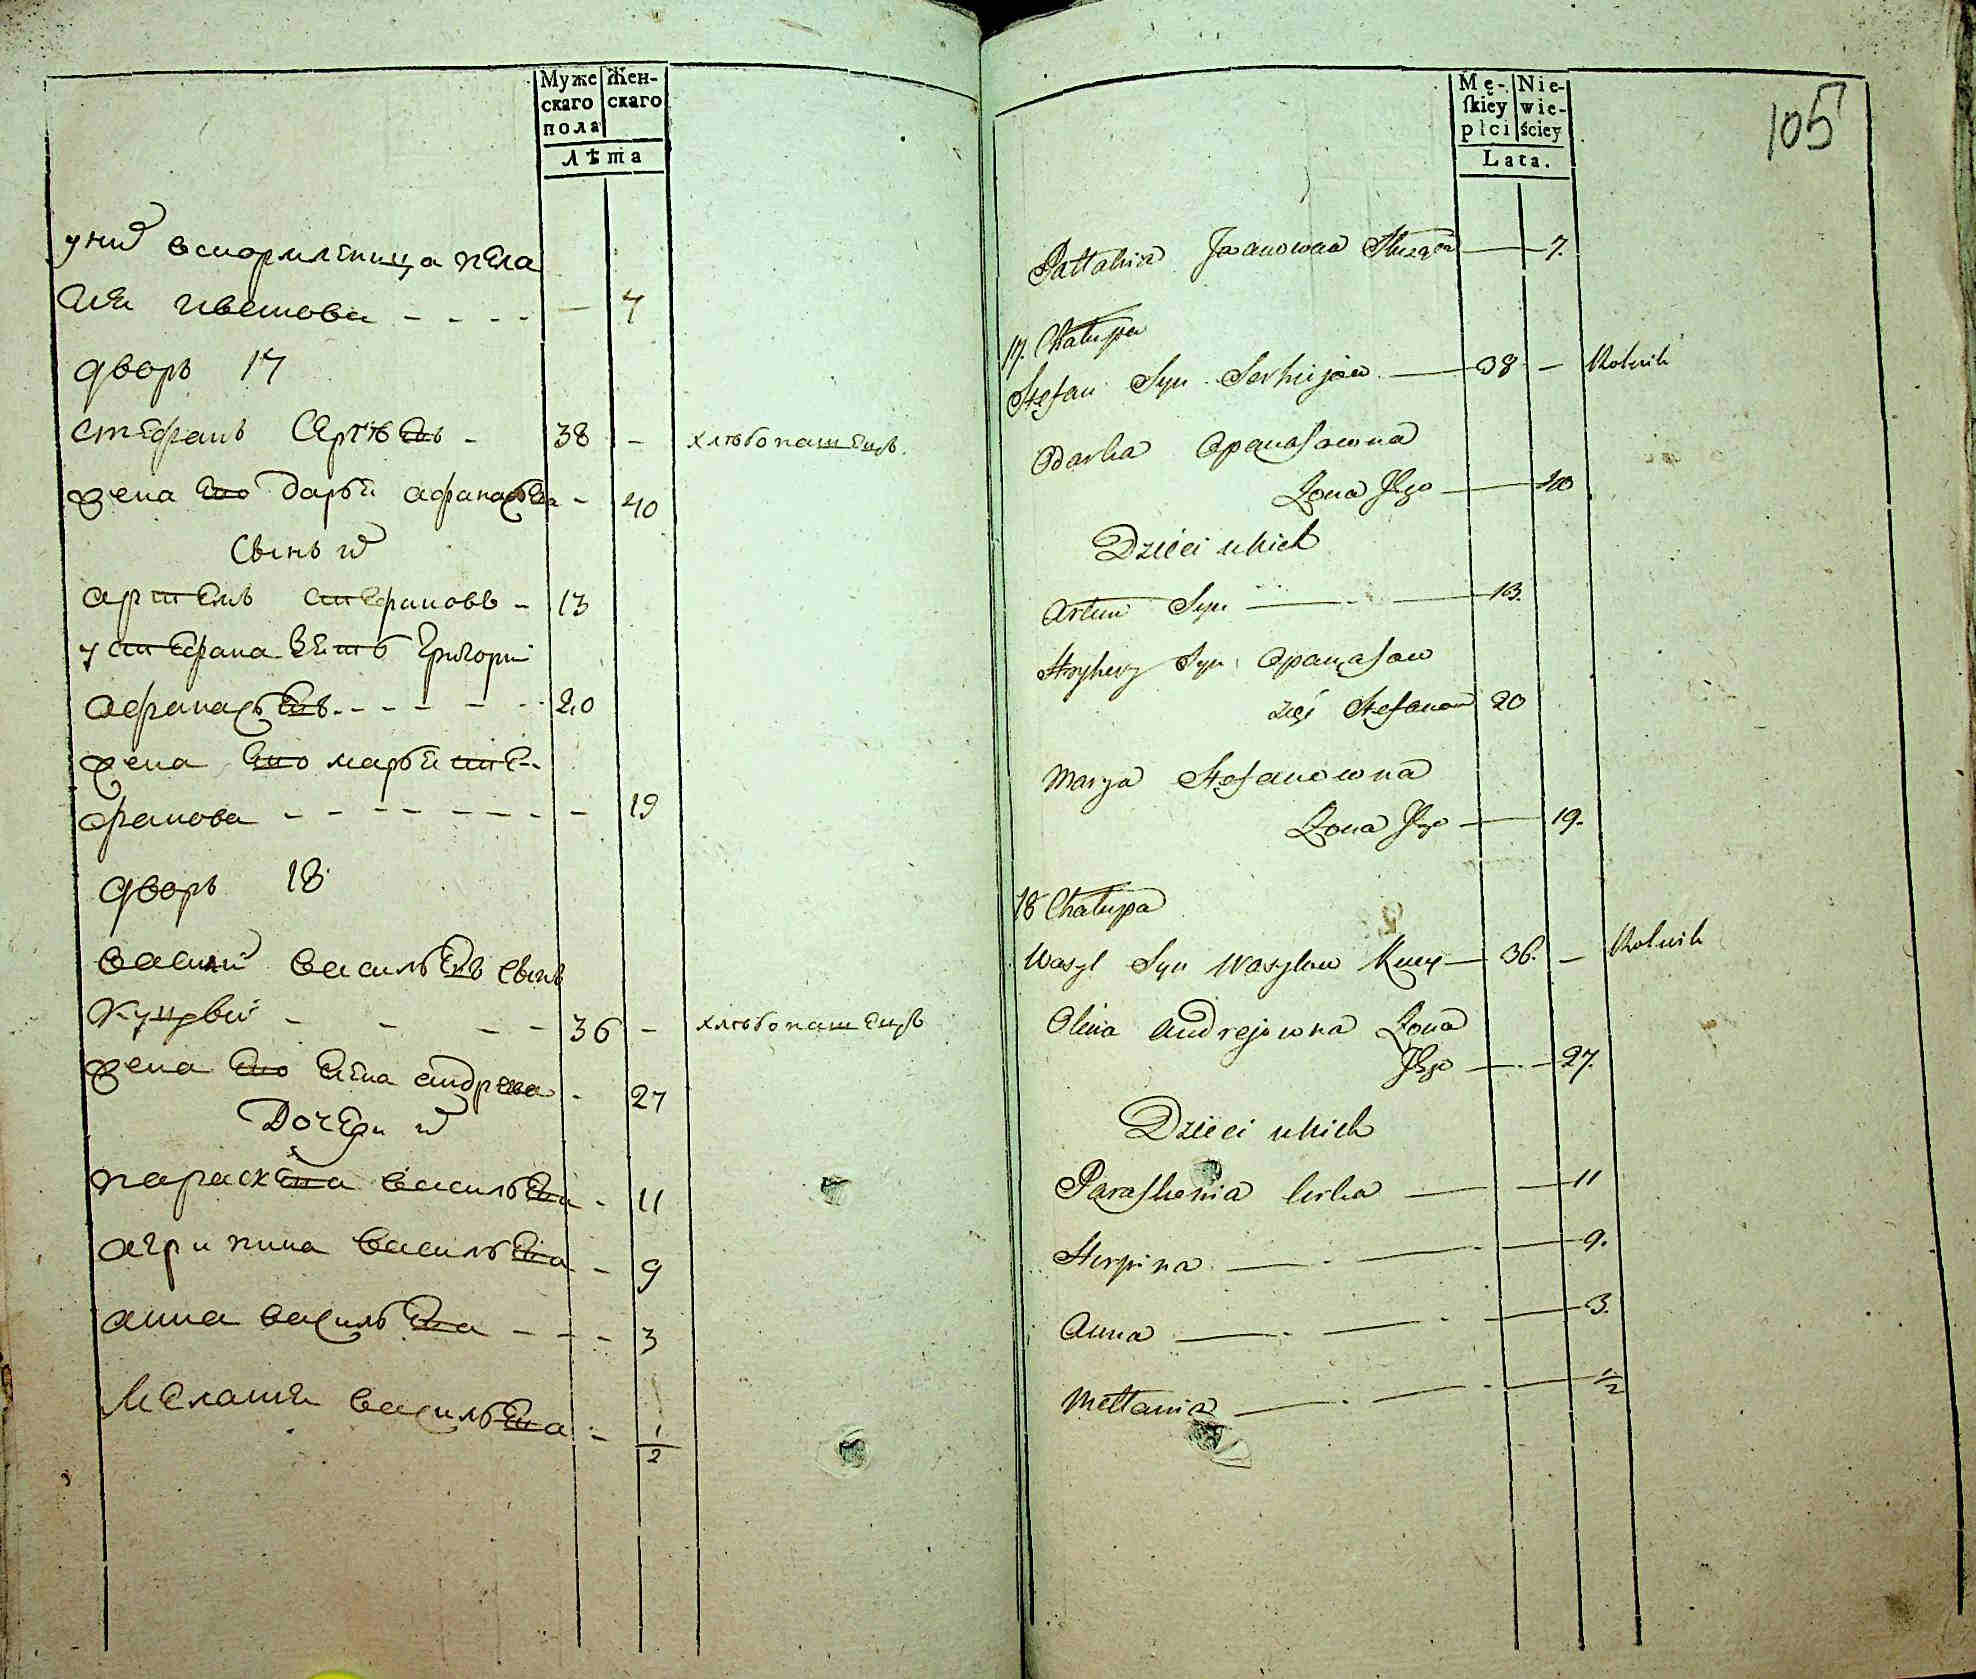 Муже
скаго
пола
Жен-
скаго
лѣта
у них вскормленица пела
гия иванова - - - - — 7
дворъ 17
стефанъ Сергѣевъ - 38 - хлѣбопашецъ
жена его дарья афанасьева - 40
Сынъ их
артемъ стефановъ - 13
у стефана зеть григорий
афанасьевъ - - - - - - 20
жена его марья сте-
фанова - - - - - - - - 19
дворъ 18
василий васильевъ сынъ
- - - - 36 - хлѣбопашецъ
жена его елена андреева - 27
Дочери их
параскева васильева - 11
агрипина васильева - - 9
анна васильева - - - 3
Мелания васильева - 1/2
Mę-
skiey
płci
Nie-
wie-
ściey
Lata.
105
Pallahia Jwanowna — 7.
17. Chałupa
Stefan Syn Serhiejow — 38 — Rolnik
Odarka Opanasowna
Zona Jego — 40
Dzieci u nich
Artem Syn — 13.
Hryhory Syn Opanasow
zięć Stefanow 20
Marya Stefanowna
Zona Jego — 19.
18 Chałupa
Wasyl Syn Wasylow — 36. — Rolnik
Olena Andrejowna Zona
Jego — 27.
Dzieci u nich
Paraskewia Corka — 11
Horpina — 9.
Anna — 3.
Mellania — 1/2